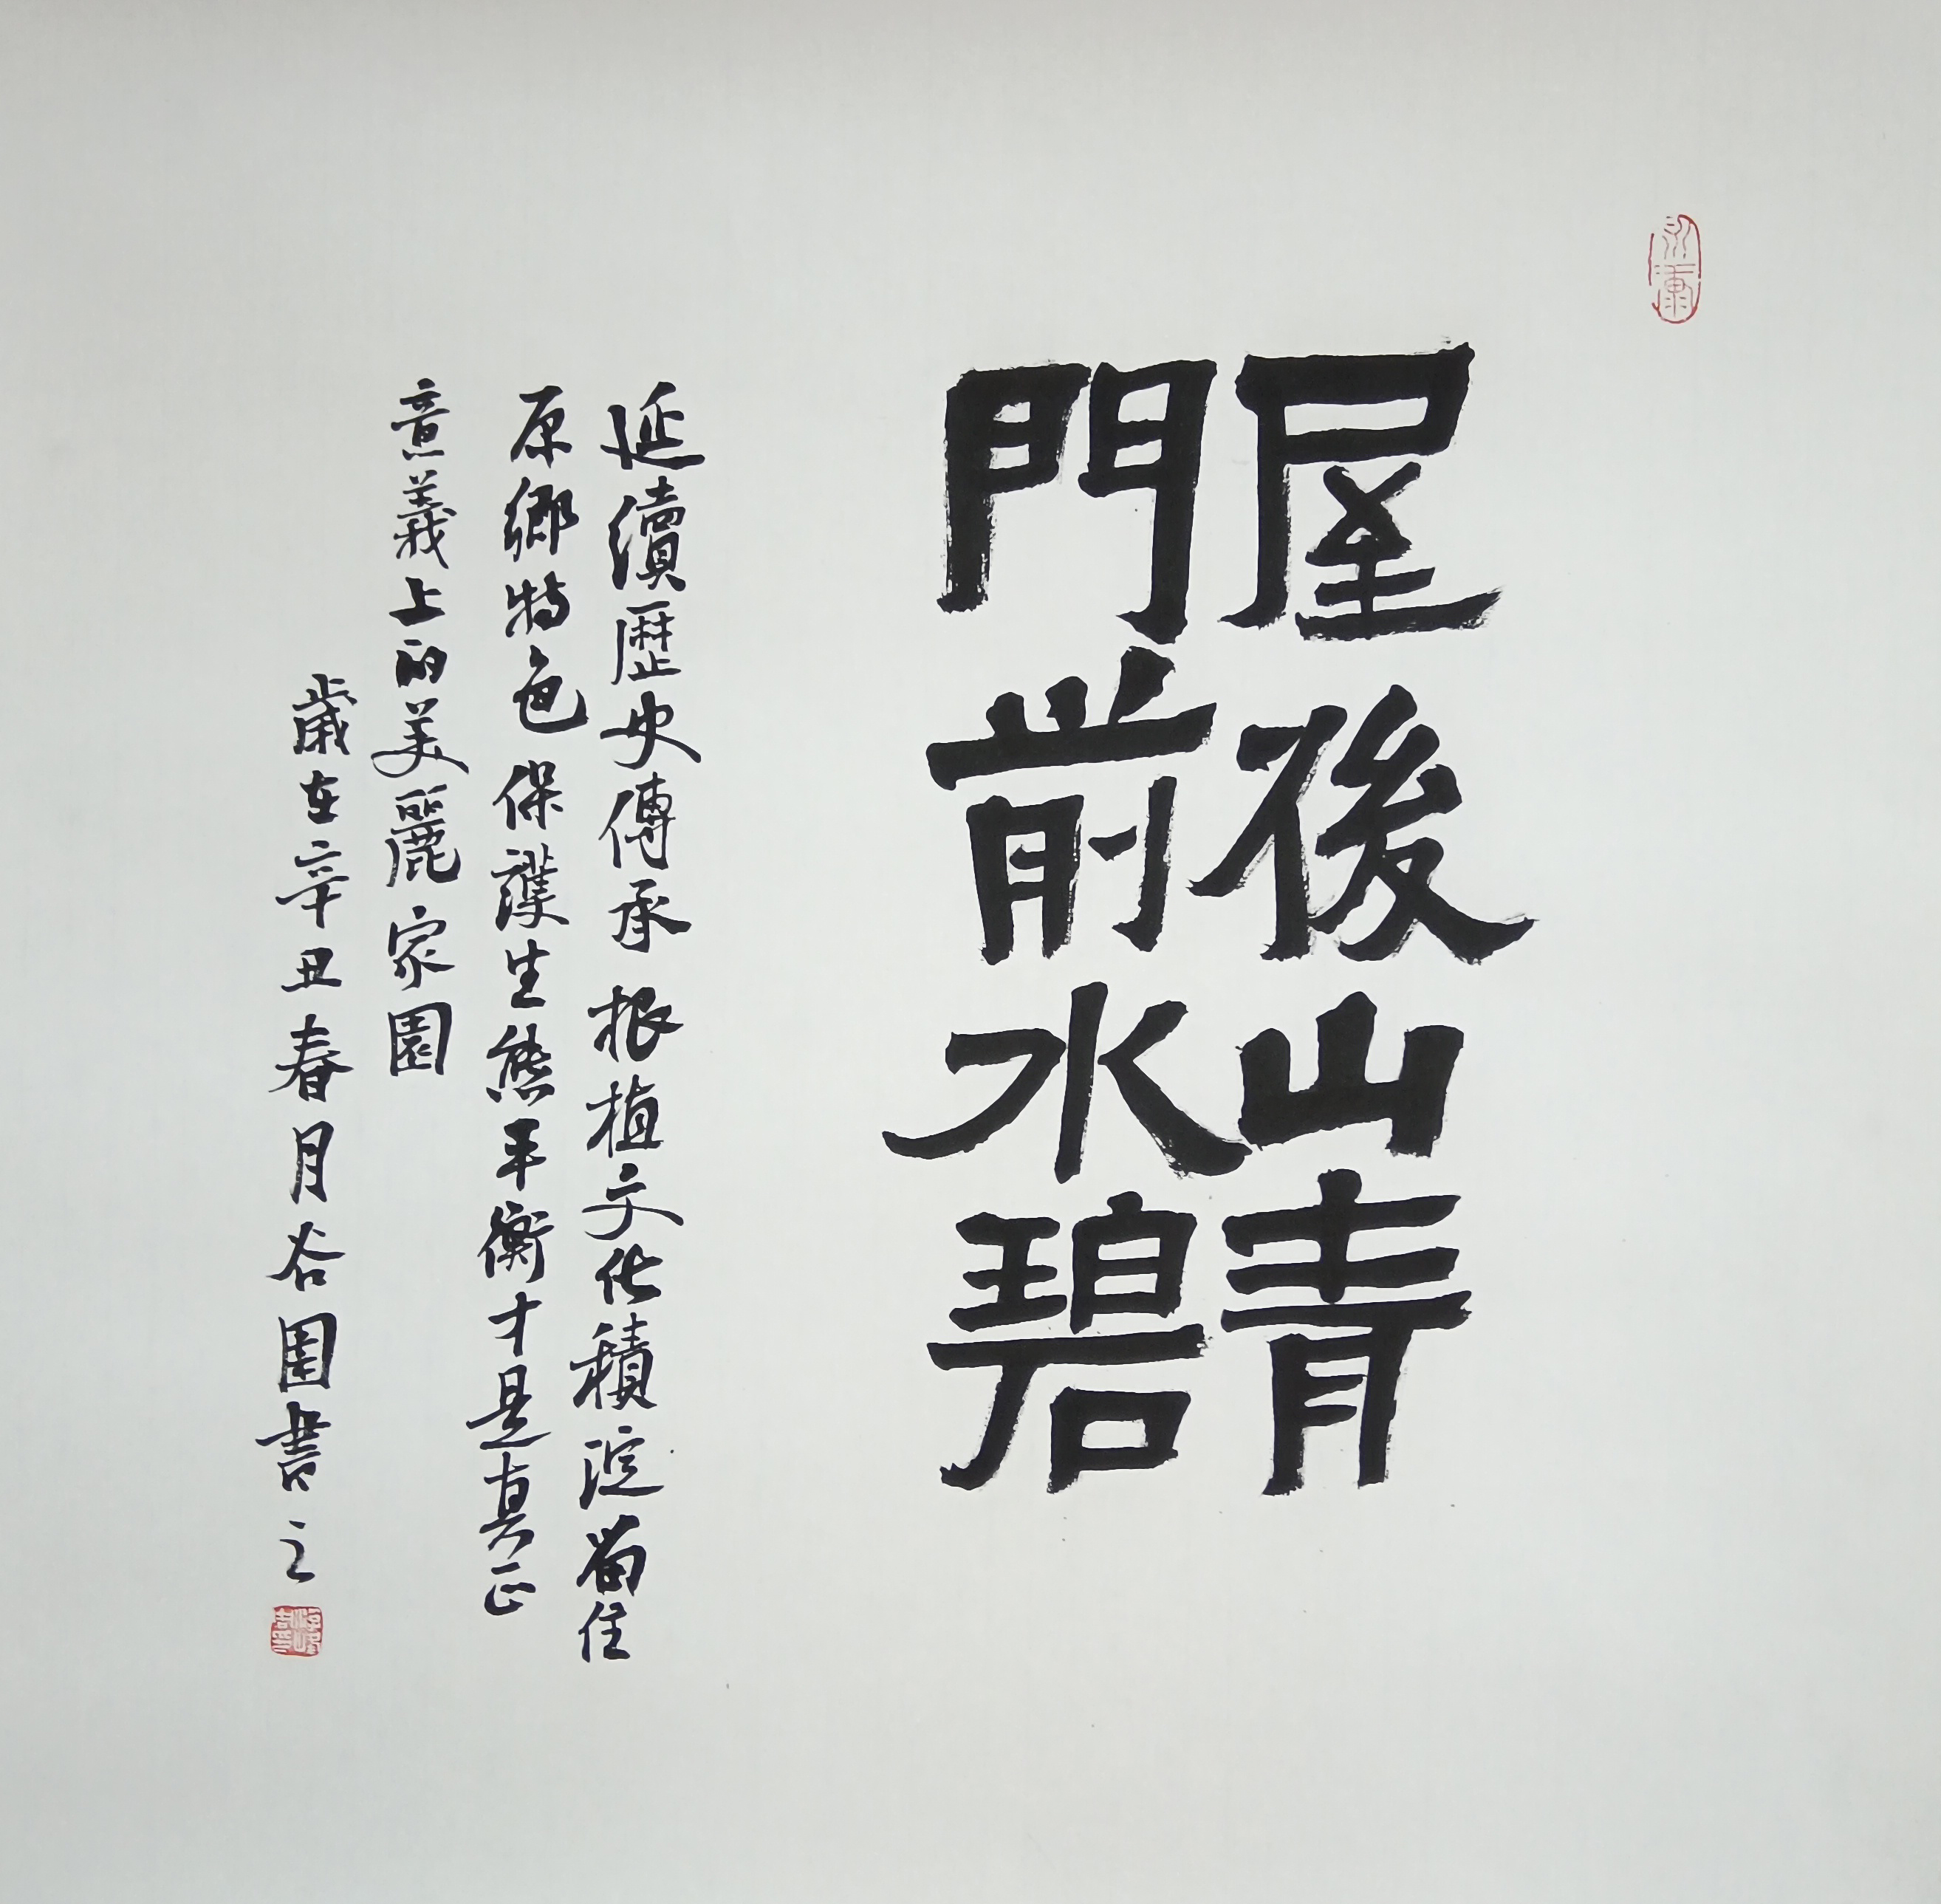 屋後山青
門前水碧
延續歷史傳承根植文化積淀留住
原鄉特色保護生態平衡才是真正
意義上的美麗家園
歲在辛丑春月谷園書之